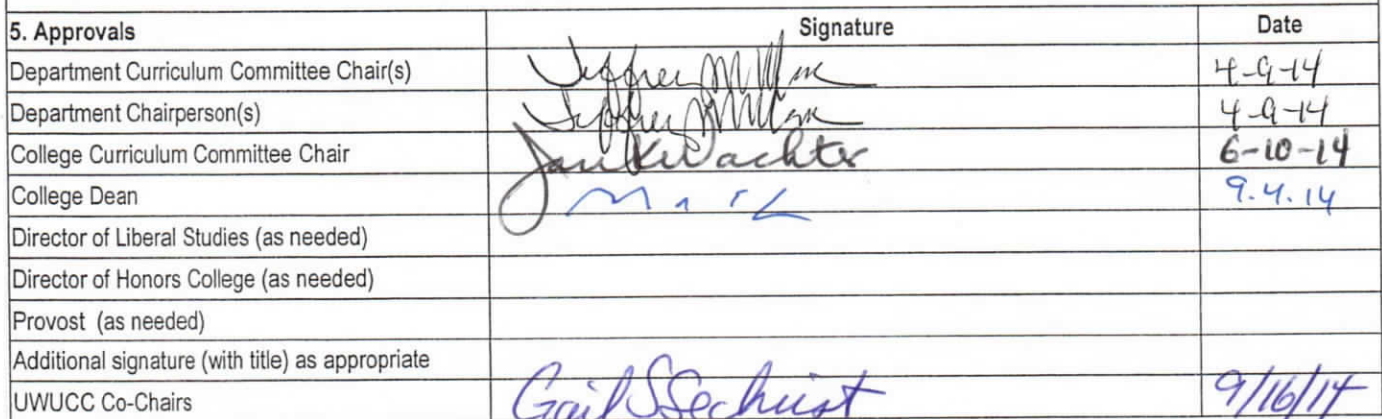 5. Approvals Signature Date
Department Curriculum Committee Chair(s) Jeffrey 4-9-14
Department Chairperson(s) Jeffrey 4-9-14
College Curriculum Committee Chair Jan K Wachter 6-10-14
College Dean 9.4.14
Director of Liberal Studies (as needed)
Director of Honors College (as needed)
Provost (as needed)
Additional signature (with title) as appropriate
UWUCC Co-Chairs Gail S Sechrist 9/16/14